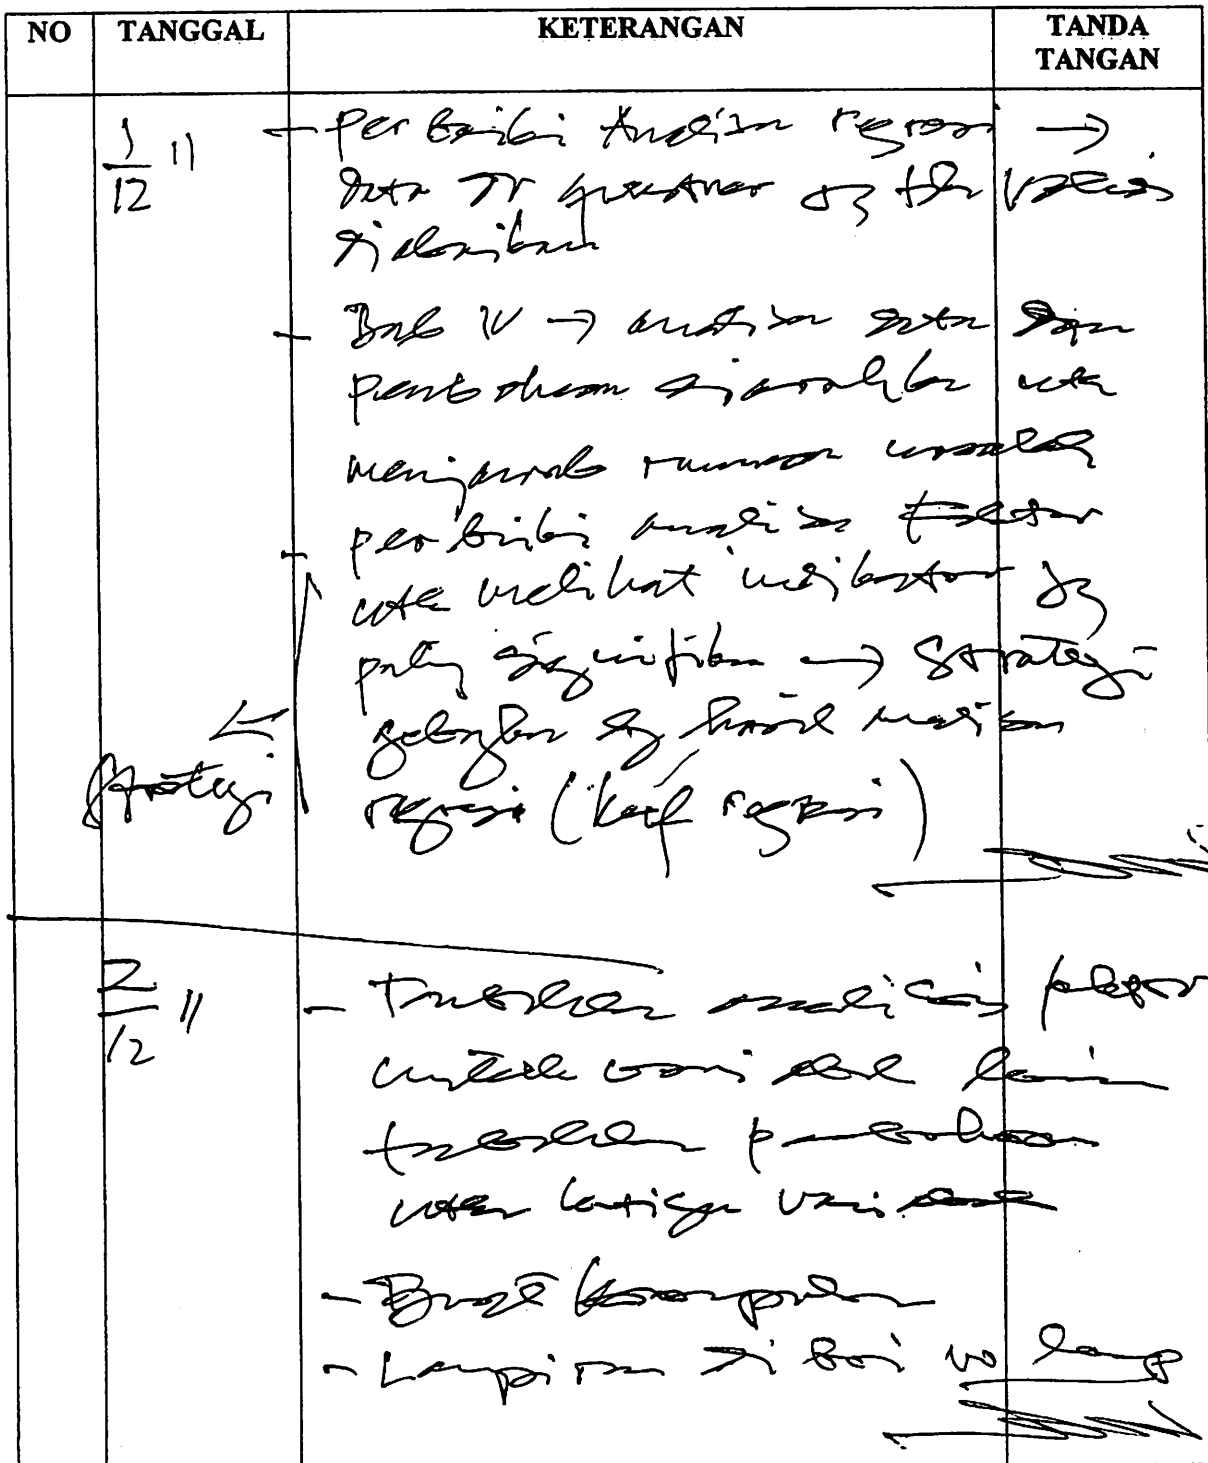 NO TANGGAL KETERANGAN TANDA TANGAN
1/12 11 - Perbaiki Analisa regresi →
data dr yg tlh
- Bab IV → analisa data dan
pembahasan diarahkan utk
menjawab rumusan masalah
- perbaiki analisa faktor
utk melihat indikator yg
paling signifikan → Strategi
gabungkan dg hasil analisa
Strategi regresi (koef regresi)
2/12 11 - Tambahkan analisis faktor
untuk variabel lain
tambahkan pembahasan
utk ketiga variabel
- Buat kesimpulan
- Lampiran di beri no lamp